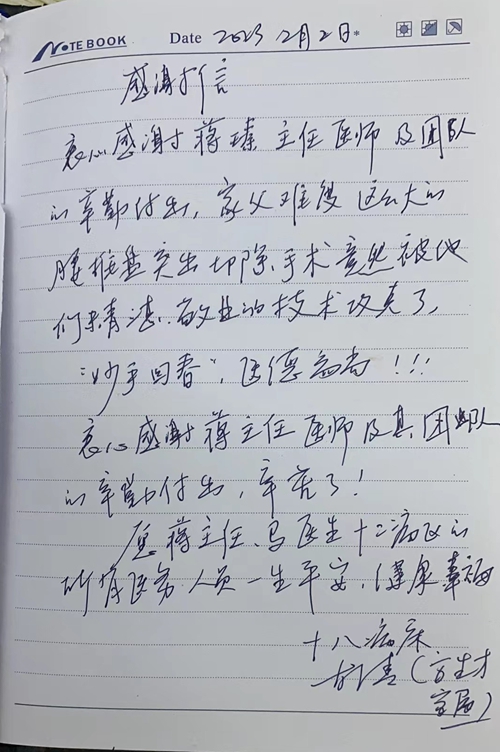 NOTEBOOK Date 2023 2月2日
感谢信
衷心感谢蒋臻主任医师及团队
的辛勤付出,家父难度这么大的
腰椎盘突出切除手术竟然被他
们精湛、敬业的技术攻克了,
"妙手回春",医德高尚!!!
衷心感谢蒋主任医师及其团队
的辛勤付出,辛苦了!
愿蒋主任、马医生十二病区的
所有医务人员一生平安,健康幸福
十八病床
(方生才
家属)